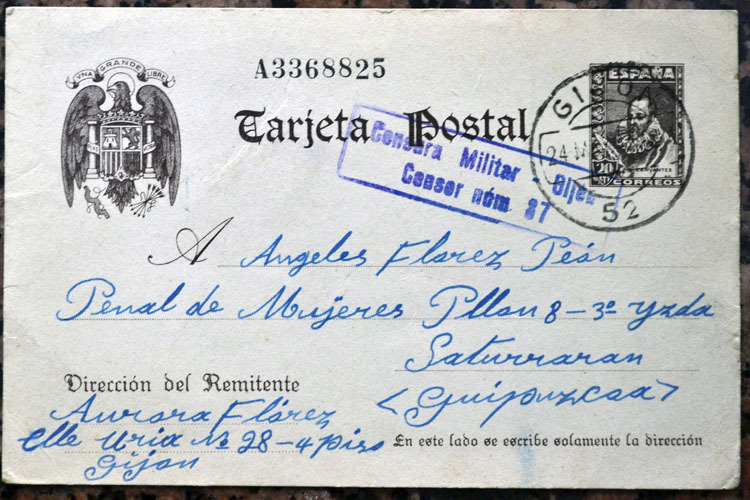 UNA GRANDE LIBRE
A3368825
Tarjeta Postal
ESPAÑA
20
CERVANTES
CORREOS
24
52
Censura Militar - Gijon
Censor núm 37
A Angeles Florez Peón
Penal de Mujeres Pllon 8-3º yzda
Saturraran
<Guipuzcoa>
Dirección del Remitente
Aurora Flórez
Clle Uria Nº 28-4 piso
Gijon
En este lado se escribe solamente la dirección